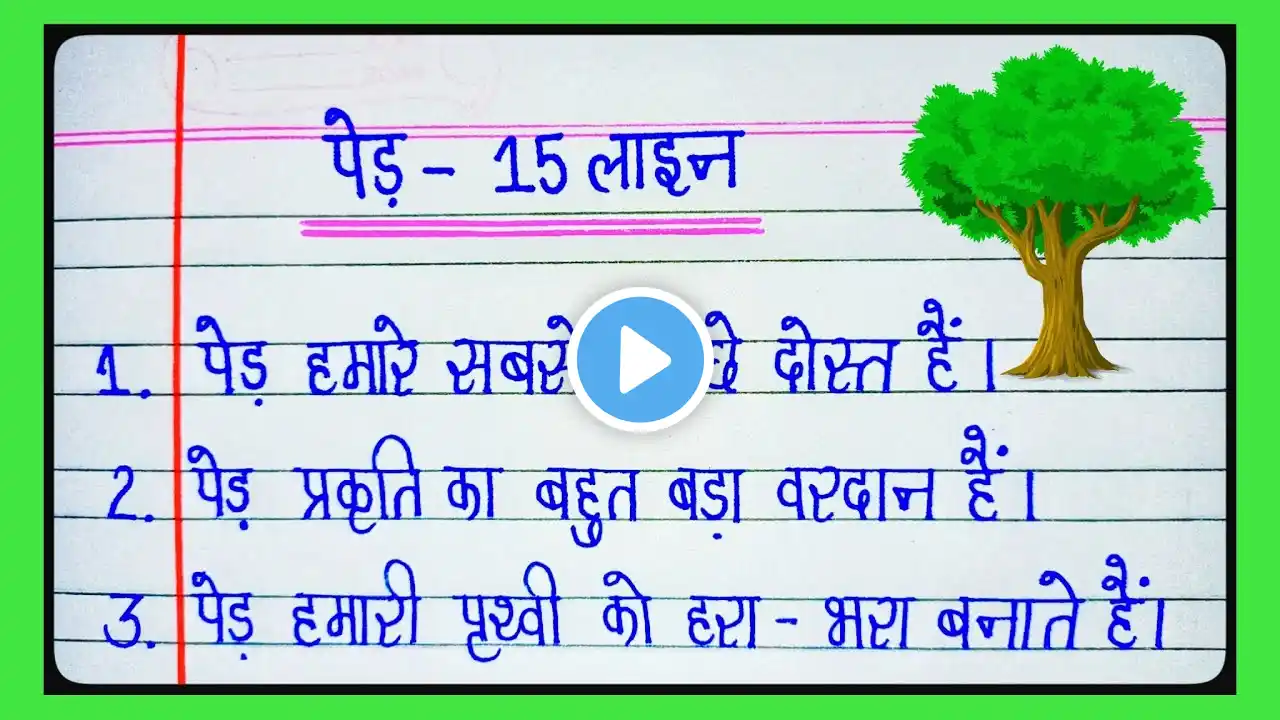 पेड़ – 15 लाइन
1. पेड़ हमारे सबसे दोस्त हैं।
2. पेड़ प्रकृति का बहुत बड़ा वरदान हैं।
3. पेड़ हमारी पृथ्वी को हरा - भरा बनाते हैं।